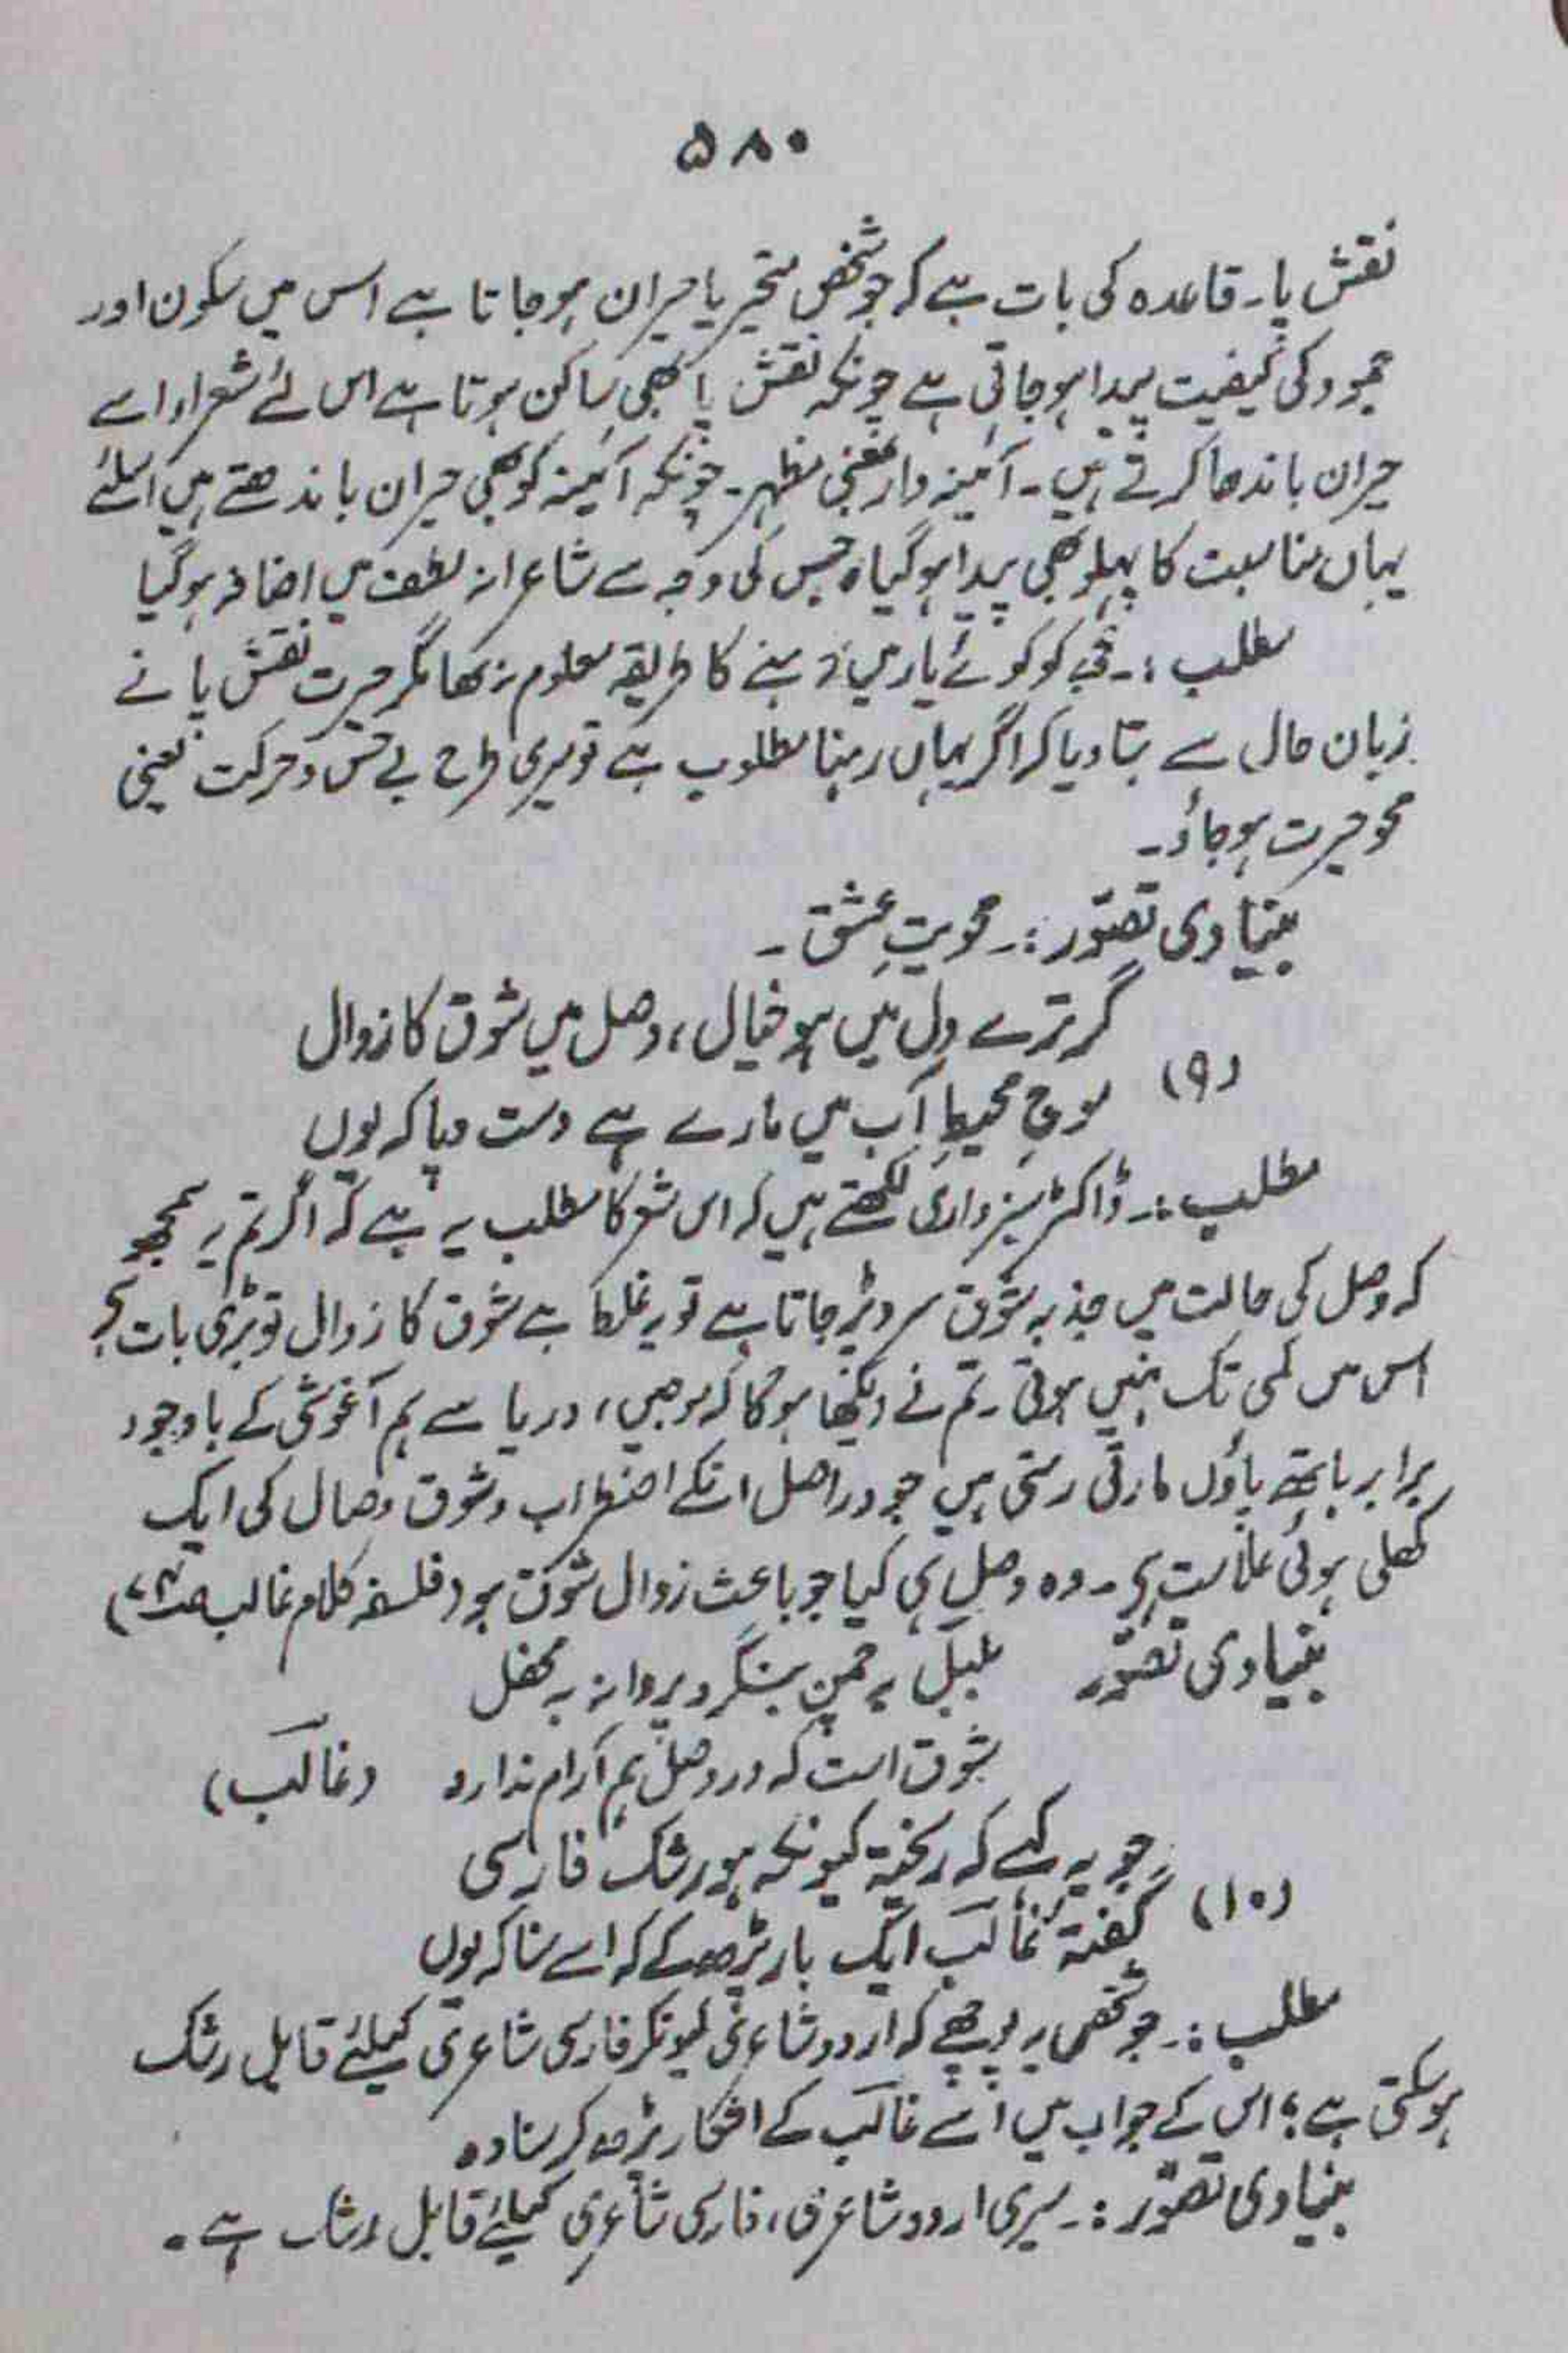 ۵۸۰
نقش پا۔ قاعدہ کی بات ہے کہ جو شخص متحیر یا حیران ہو جاتا ہے اس میں سکون اور
جمود کی کیفیت پیدا ہو جاتی ہے چونکہ نقش پا بھی ساکن ہوتا ہے اس لئے شعراء اسے
حیران باندھا کرتے ہیں۔ آئینہ دار بمعنی مظہر۔ چونکہ آئینہ کو بھی حیران باندھتے ہیں اسلئے
یہاں مناسبت کا پہلو بھی پیدا ہو گیا، جس کی وجہ سے شاعرانہ لطف میں اضافہ ہو گیا
مطلب :۔ مجھ کو کوئے یار میں رہنے کا طریقہ معلوم نہ تھا مگر حیرت نقش پا نے
زبان حال سے بتا دیا کہ اگر یہاں رہنا مطلوب ہے تو میری طرح بے حس و حرکت یعنی
محو حیرت ہو جاؤ۔
بنیادی تصوّر :۔ محویتِ عشق۔
گر ترے دل میں ہو خیال، وصل میں شوق کا زوال
(۹) موجِ محیطِ آب میں مارے ہے دست و پا کہ یوں
مطلب :۔ ڈاکٹر سبزواری لکھتے ہیں کہ اس شعر کا مطلب یہ ہے کہ اگر تم یہ سمجھو
کہ وصل کی حالت میں جذبہ شوق سرد پڑ جاتا ہے تو یہ غلط ہے شوق کا زوال تو بڑی بات ہے
اس میں کمی تک نہیں ہوتی۔ تم نے دیکھا ہو گا کہ موجیں، دریا سے ہم آغوشی کے باوجود
برابر ہاتھ پاؤں مارتی رہتی ہیں جو دراصل انکے اضطراب و شوق وصال کی ایک
کھلی ہوئی علامت ہے۔ وہ وصل ہی کیا جو باعث زوال شوق ہو (فلسفہ کلام غالب
بنیادی تصوّر بلبل بہ چمن بنگر و پروانہ بہ محفل
شوق است کہ در وصل ہم آرام ندارد (غالبؔ)
جو یہ کہے کہ ریختہ کیونکہ ہو رشک فارسی
(۱۰) گفتۂ غالبؔ ایک بار پڑھ کے اسے سنا کہ یوں
مطلب :۔ جو شخص یہ پوچھے کہ اردو شاعری کیونکر فارسی شاعری کیلئے قابل رشک
ہو سکتی ہے؟ اس کے جواب میں اُسے غالبؔ کے اشعار پڑھ کر سنا دو
بنیادی تصوّر :۔ میری اردو شاعری، فارسی شاعری کیلئے قابل رشک ہے۔